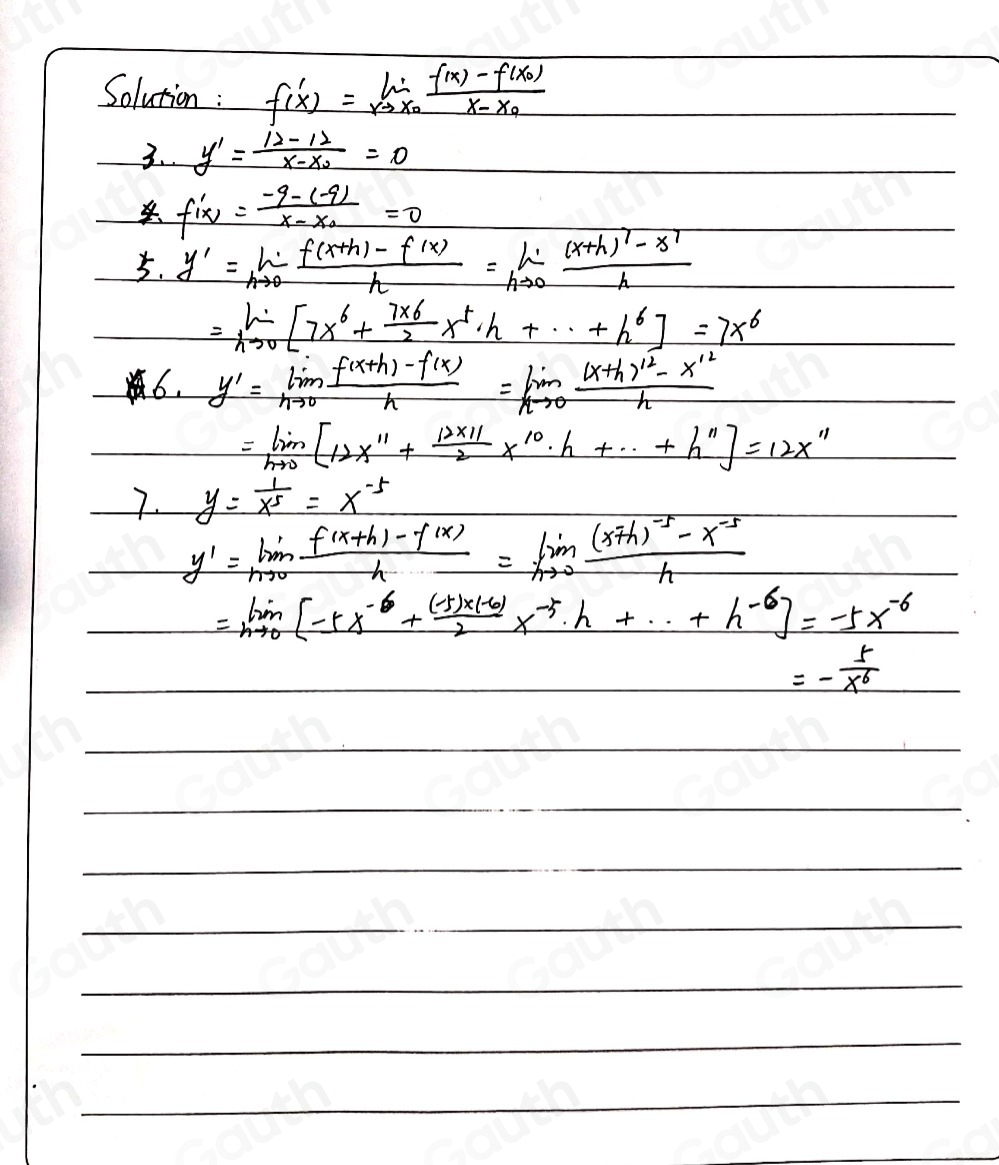 Solution : f'(x) = lim x→x₀ (f(x) - f(x₀))/(x - x₀)
3.. y' = (12 - 12)/(x - x₀) = 0
4. f'(x) = (-9 - (-9))/(x - x₀) = 0
5. y' = lim h→0 (f(x+h) - f(x))/h = lim h→0 ((x+h)⁷ - x⁷)/h
= lim h→0 [7x⁶ + (7×6)/2 x⁵·h + ·· + h⁶] = 7x⁶
6. y' = lim h→0 (f(x+h) - f(x))/h = lim h→0 ((x+h)¹² - x¹²)/h
= lim h→0 [12x¹¹ + (12×11)/2 x¹⁰·h + ·· + h¹¹] = 12x¹¹
7. y = 1/x⁵ = x⁻⁵
y' = lim h→0 (f(x+h) - f(x))/h = lim h→0 ((x+h)⁻⁵ - x⁻⁵)/h
= lim h→0 [-5x⁻⁶ + ((-5)×(-6))/2 x⁻⁵·h + ·· + h⁻⁶] = -5x⁻⁶
= - 5/x⁶